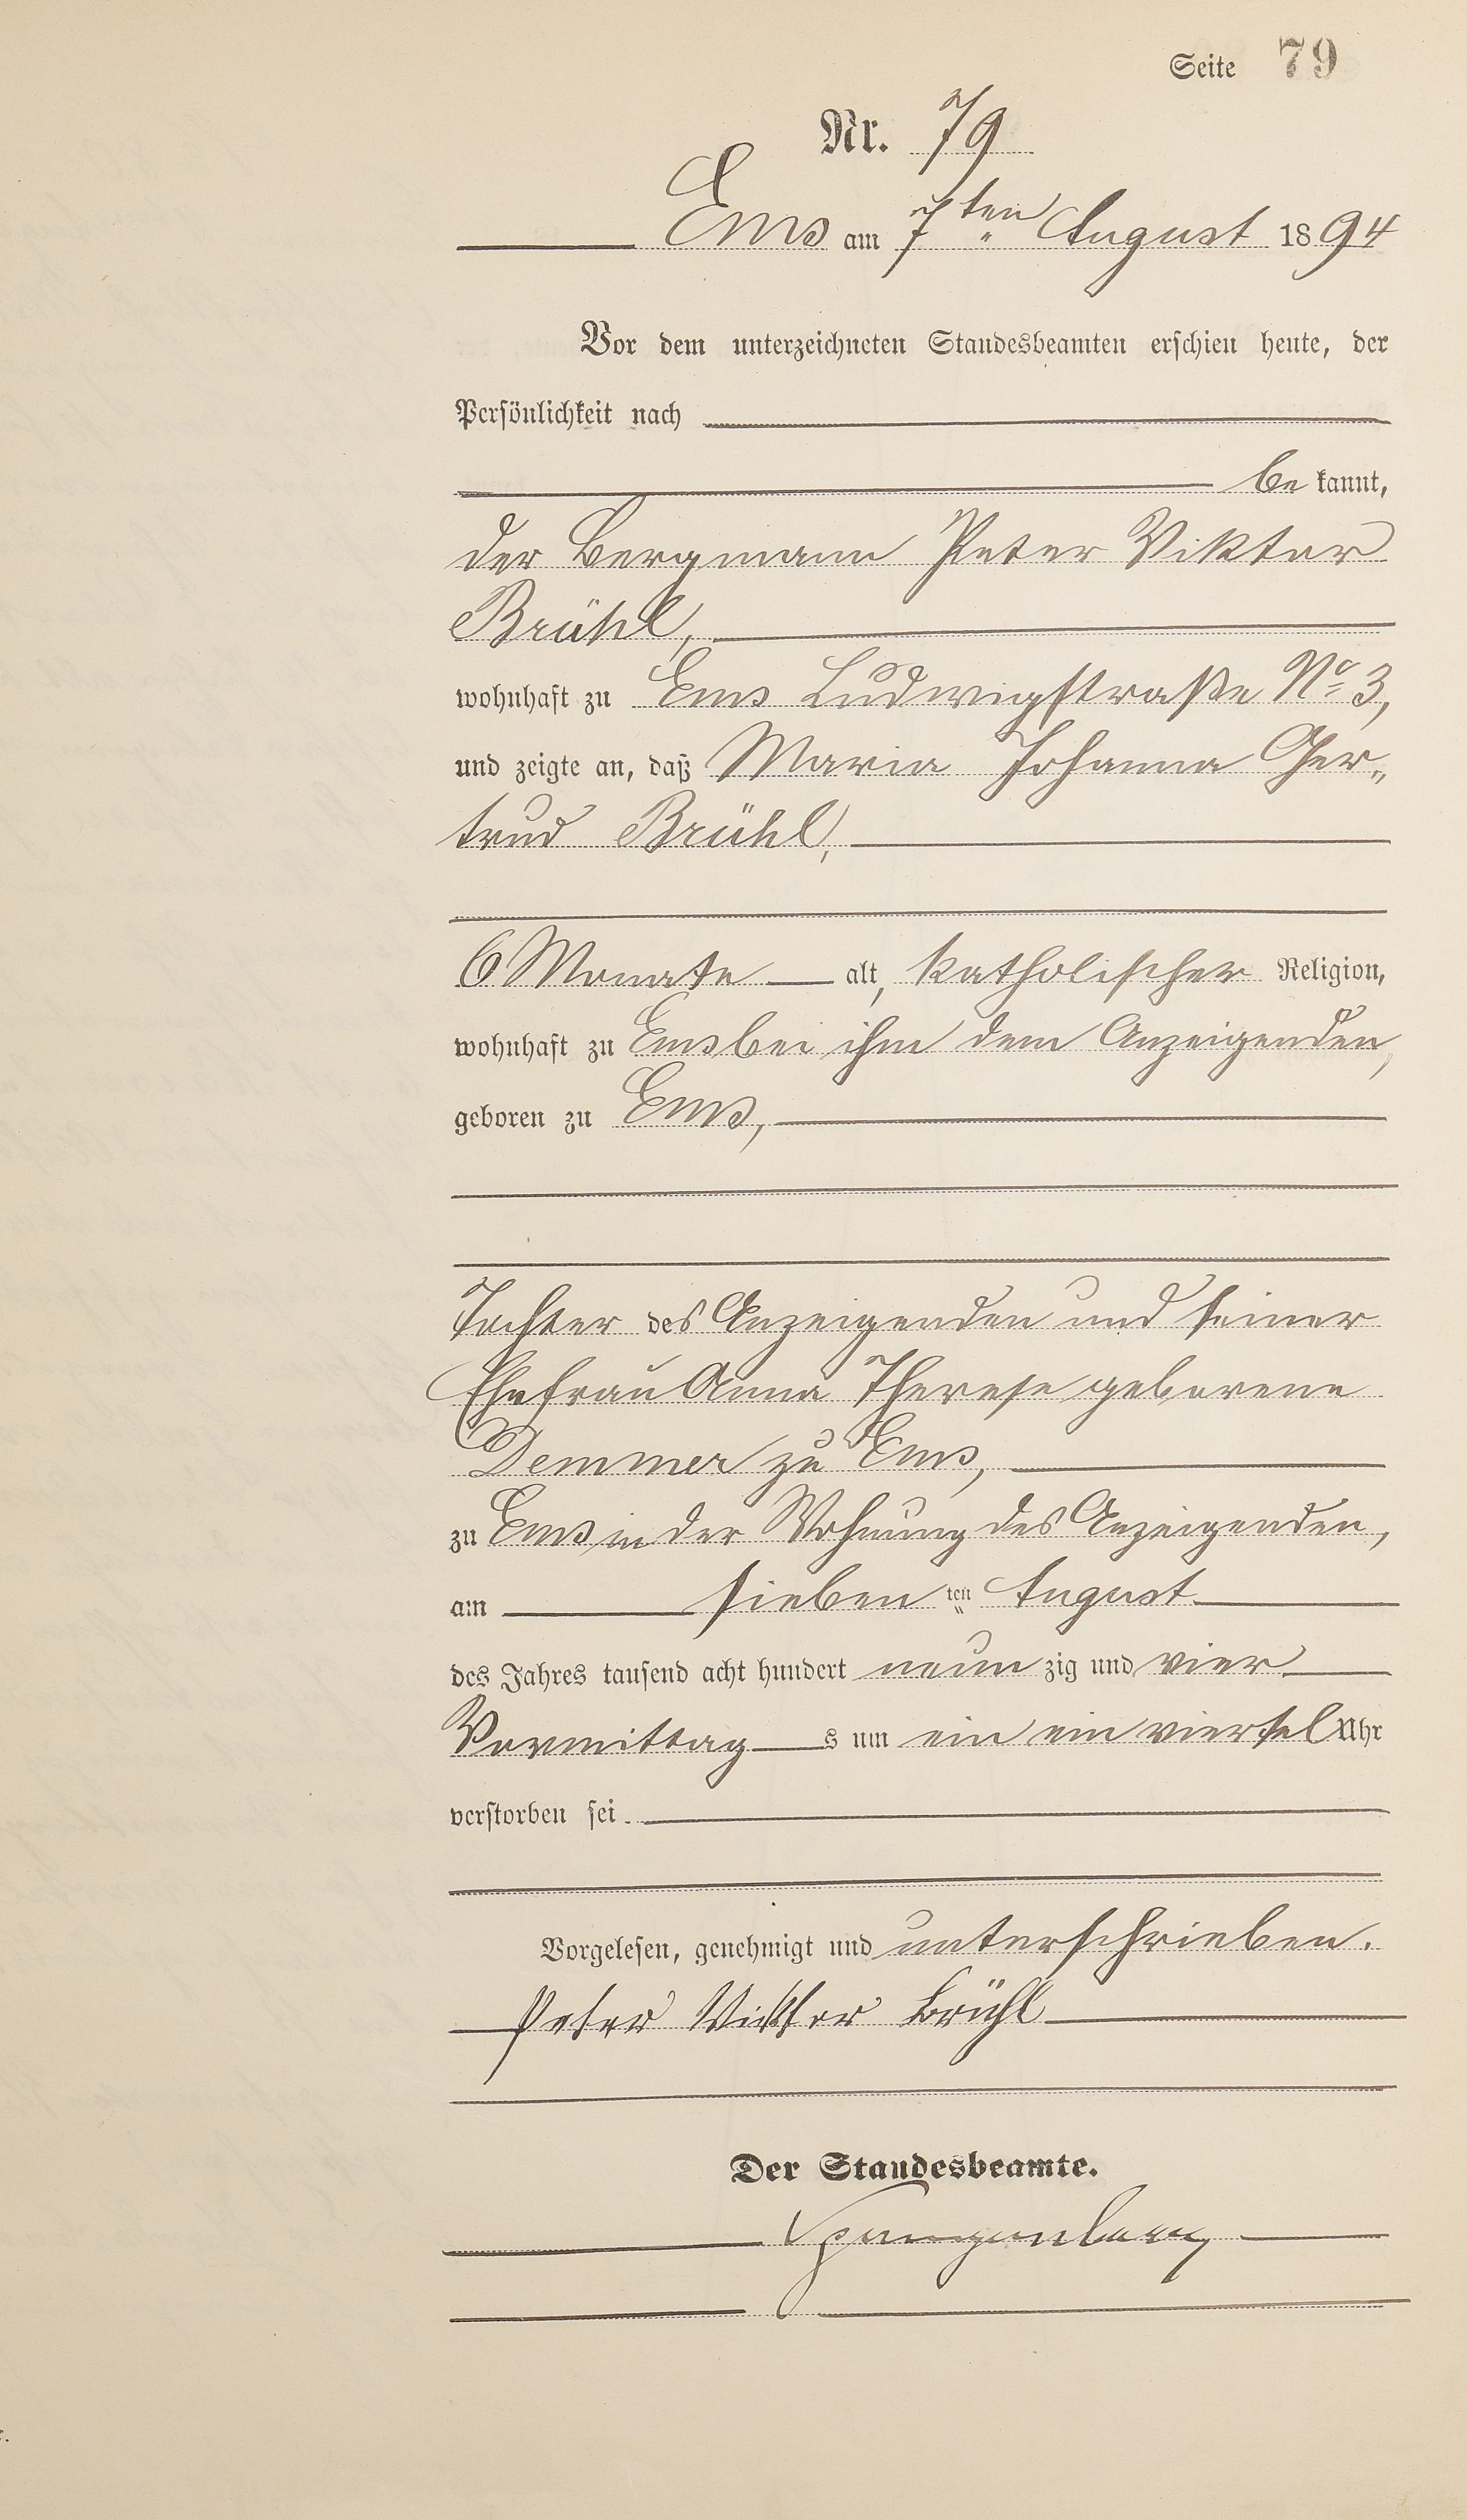 Seite 79
Nr. 79
Ems am 7ten August 1894
Vor dem unterzeichneten Standesbeamten erschien heute, der
Persönlichkeit nach
bekannt,
der Bergmann Peter Viktor
Brühl,
wohnhaft zu Ems Ludwigstraße No 3,
und zeigte an, daß Maria Johanna Ger„
trud Brühl,
6 Monate alt, katholischer Religion,
wohnhaft zu Ems bei ihm dem Anzeigenden,
geboren zu Ems,
Tochter des Anzeigenden und seiner
Ehefrau Anna Therese geborene
Demmer zu Ems,
zu Ems in der Wohnung des Anzeigenden,
am sieben ten August
des Jahres tausend acht hundert neun zig und vier
Vormittag s um ein ein viertel Uhr
verstorben sei.
Vorgelesen, genehmigt und unterschrieben.
Peter Viktor Brühl
Der Standesbeamte.
Spangenberg